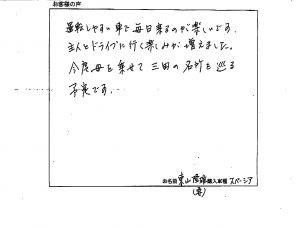 お客様の声
運転しやすい車で毎日乗るのが楽しいです。
主人とドライブに行く楽しみが増えました。
今度母を乗せて三田の名所を巡る
予定です。
お名前 東山 様 購入車種 スペーシア